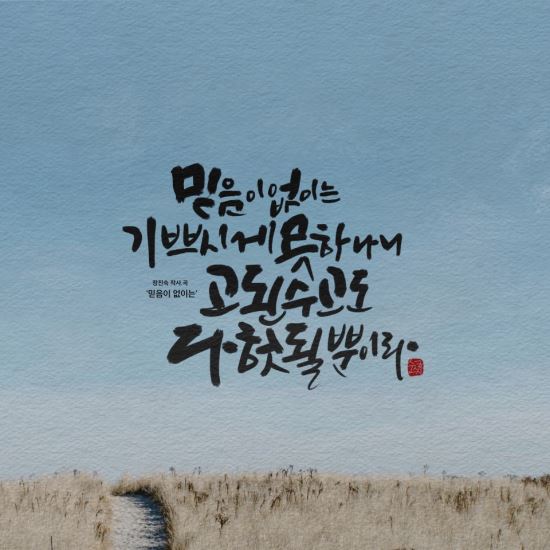 믿음이 없이는
기쁘시게 못하나니
장진숙 작사 곡
'믿음이 없이는'
고된 수고도
다 헛될 뿐이라.